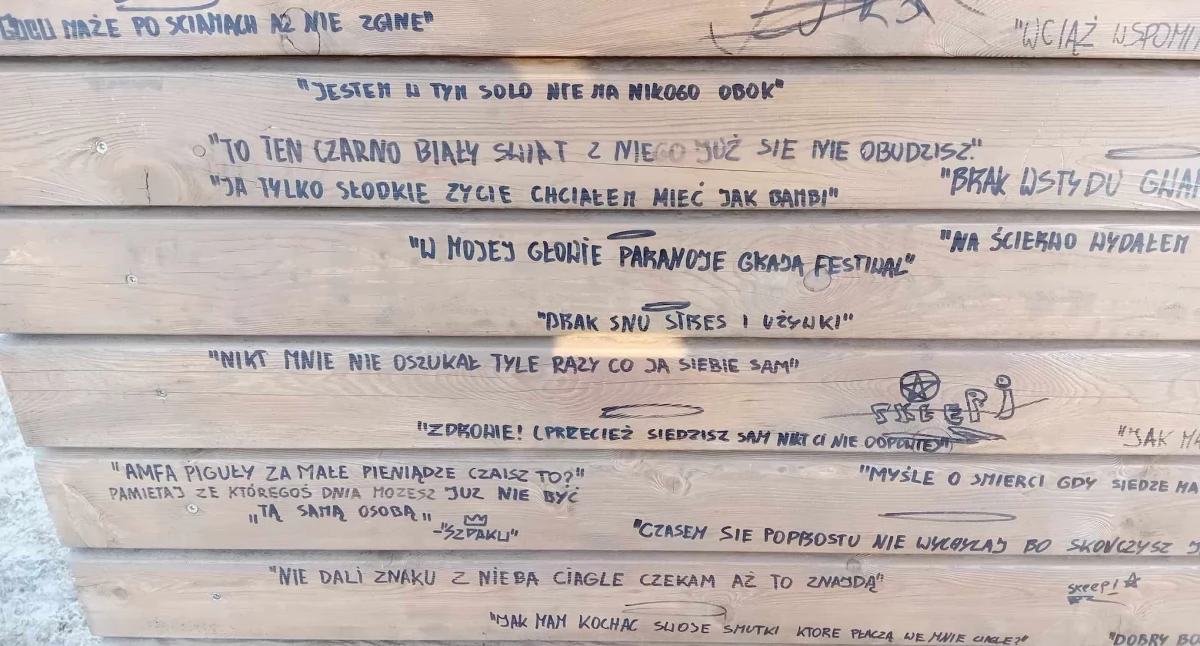 MAŻE PO SCIANACH AŻ NIE ZGINE"
"WCIĄŻ WSPOMI
"JESTEM W TYM SOLO NIE MA NIKOGO OBOK"
"TO TEN CZARNO BIAŁY SWIAT Z NIEGO JUŻ SIE NIE OBUDZISZ."
"JA TYLKO SŁODKIE ZYCIE CHCIAŁEM MIEĆ JAK BAMBI"
"BRAK WSTYDU GWA
"W MOJEJ GŁOWIE PARANOJE GRAJA FESTIWAL"
"NA ŚCIERWO WYDAŁEM
"BRAK SNU STRES I UŻYWKI"
"NIKT MNIE NIE OSZUKAŁ TYLE RAZY CO JA SIEBIE SAM"
SKEEPJ
"ZDROWIE! (PRZECIEŻ SIEDZISZ SAM NIKT CI NIE ODPOWIE)"
"JAK MA
"AMFA PIGUŁY ZA MAŁE PIENIĄDZE CZAISZ TO?"
PAMIETAJ ZE KTÓREGOŚ DNIA MOZESZ JUZ NIE BYĆ
„TĄ SAMĄ OSOBĄ„
-"SZPAKU"
"MYŚLE O SMIERCI GDY SIEDZE NA
"CZASEM SIE POPROSTU NIE WYCHYLAJ BO SKOŃCZYSZ J
"NIE DALI ZNAKU Z NIEBA CIAGLE CZEKAM AŻ TO ZNAJDĄ"
skeep!
"JAK MAM KOCHAC SWOJE SMUTKI KTORE PŁACZĄ WE MNIE CIAGLE?"
"DOBRY BO